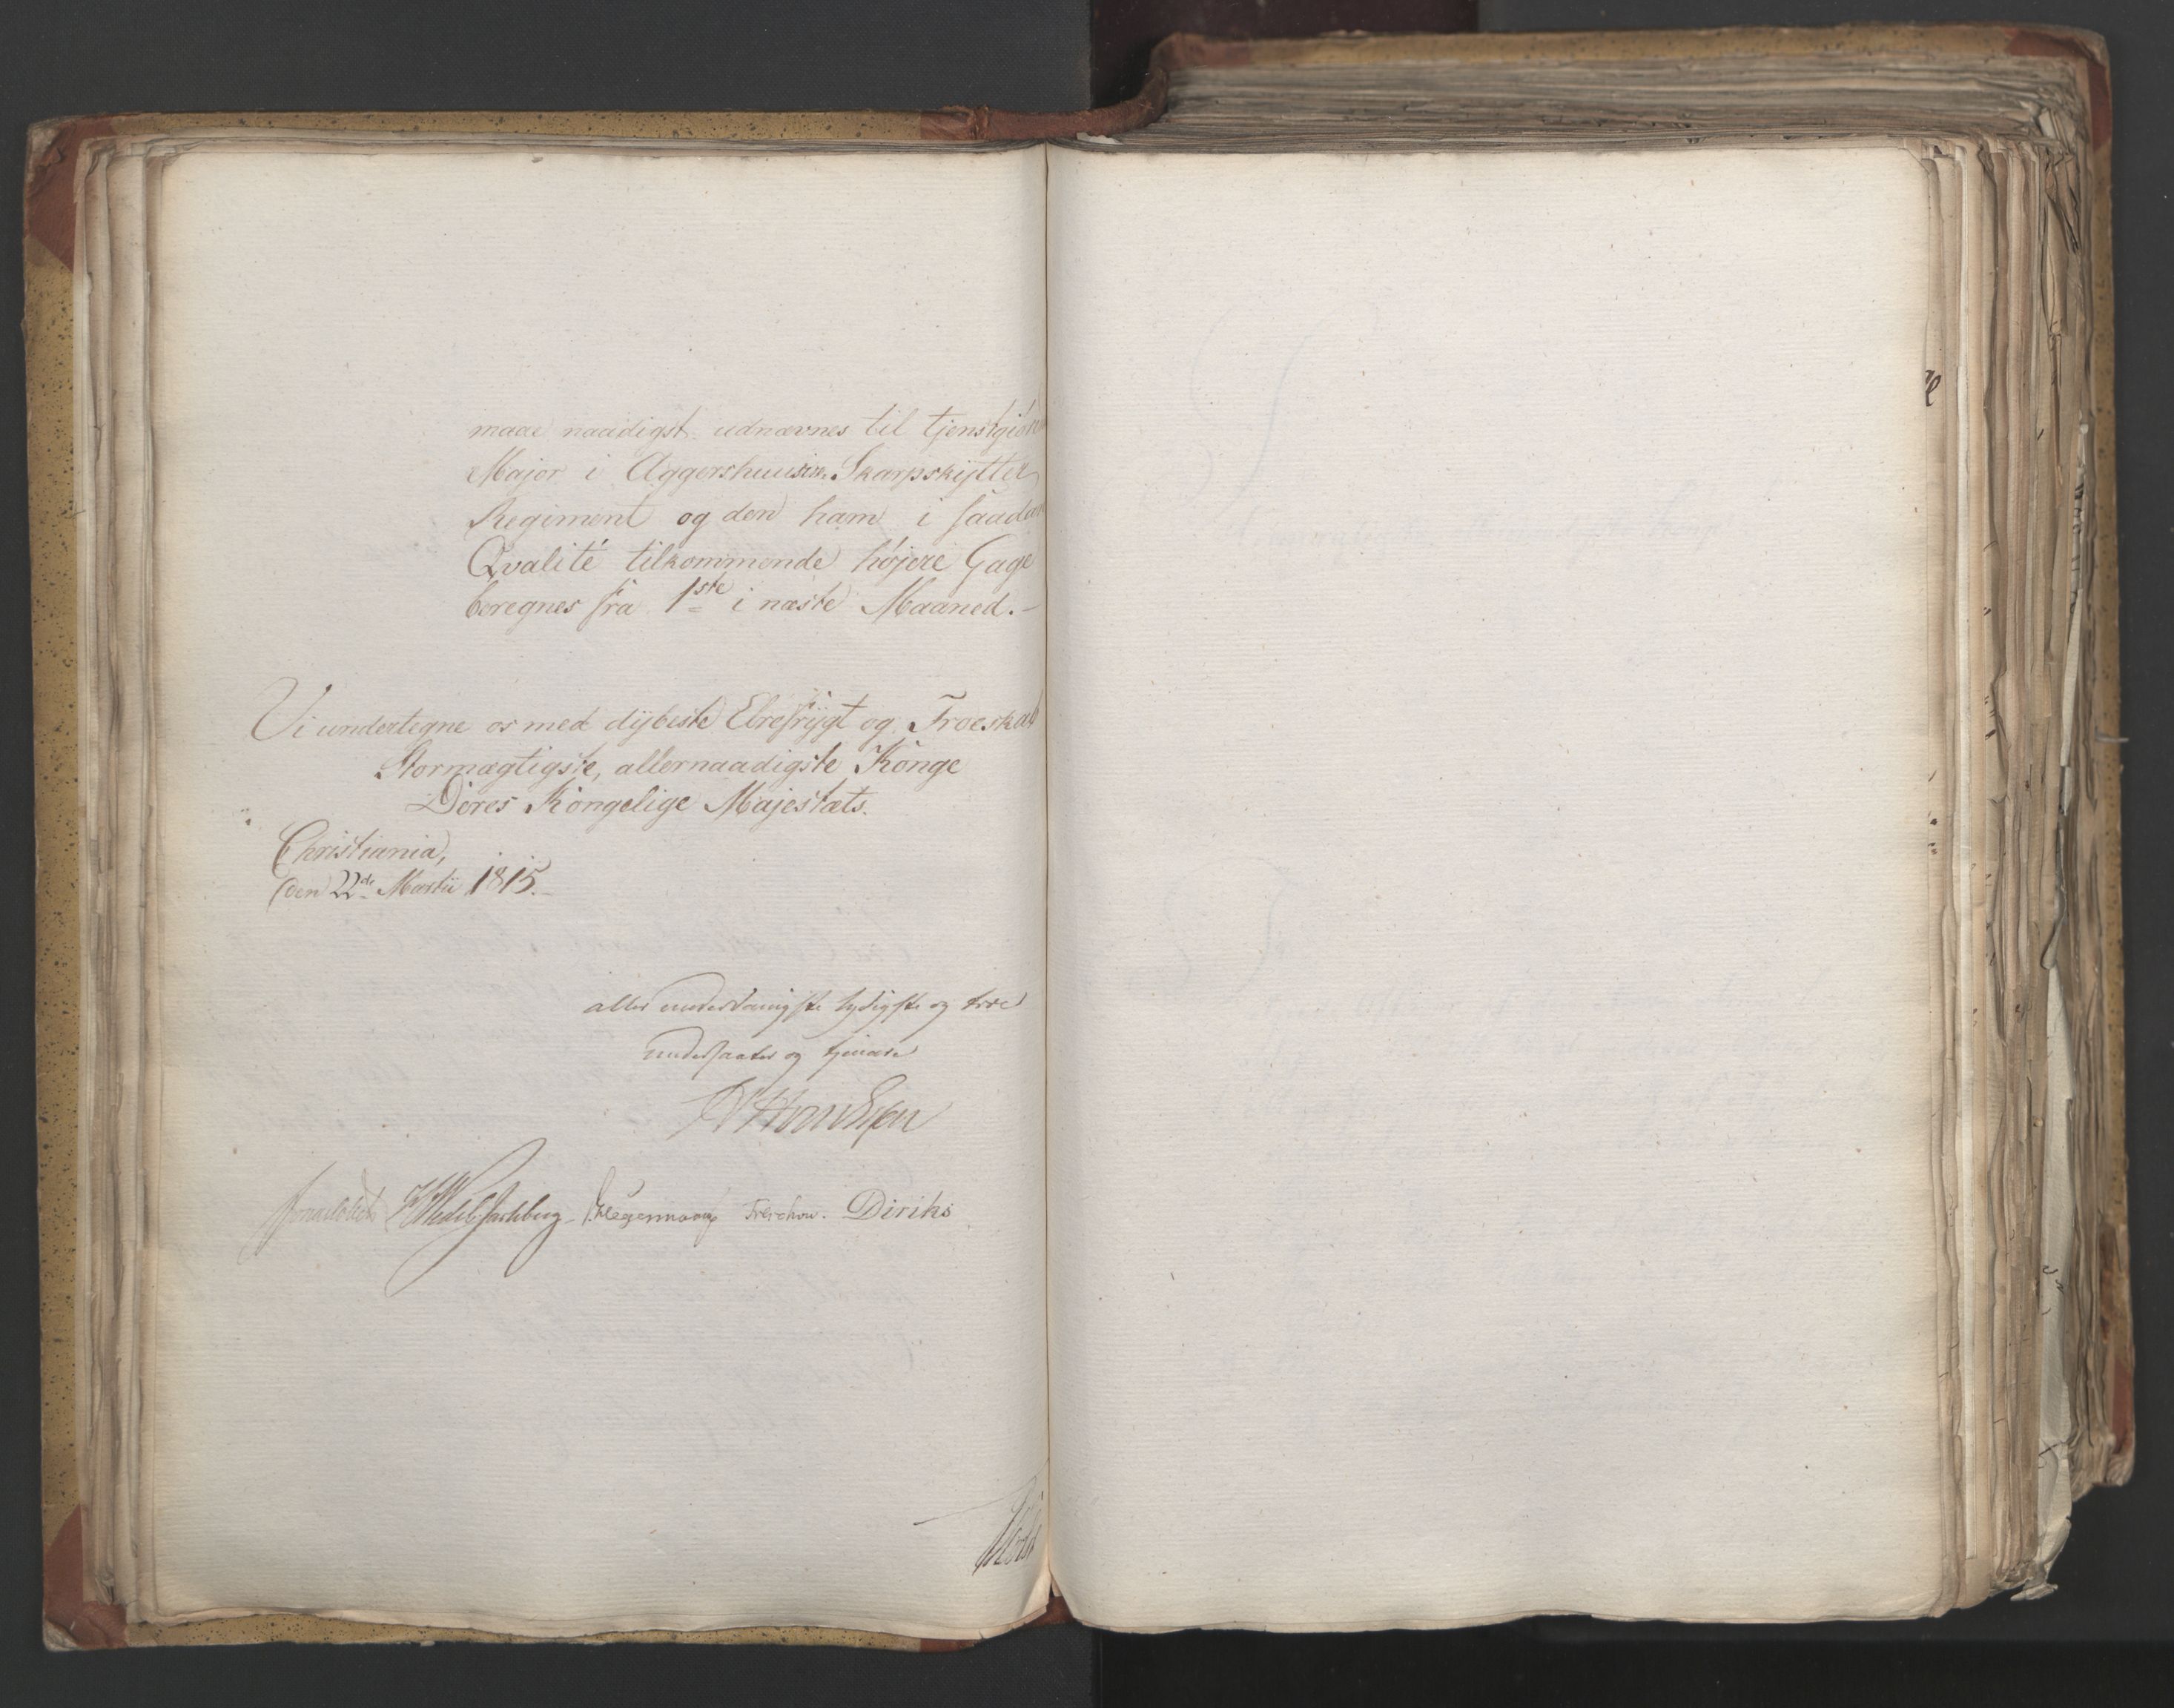 maae naadigst udnævnes til tjenstgiøre
Major i Aggershuusiske Skarpskytter
Regiment og den ham i saadan
Qvalité tilkommende højere Gage
beregnes fra 1ste i næste Maaned.-
Vi undertegne os med dybeste Ehrefrygt og Troeskab
Stormægtigste, allernaadigste Konge
Deres Kongelige Majestæts.
Christiania,
den 22de Martii 1815.
allerunderdanigste lydigste og troe
undersaater og tjenere
Sommerhjelm
Wedel Jarlsberg Hegermann Treschow. Diriks